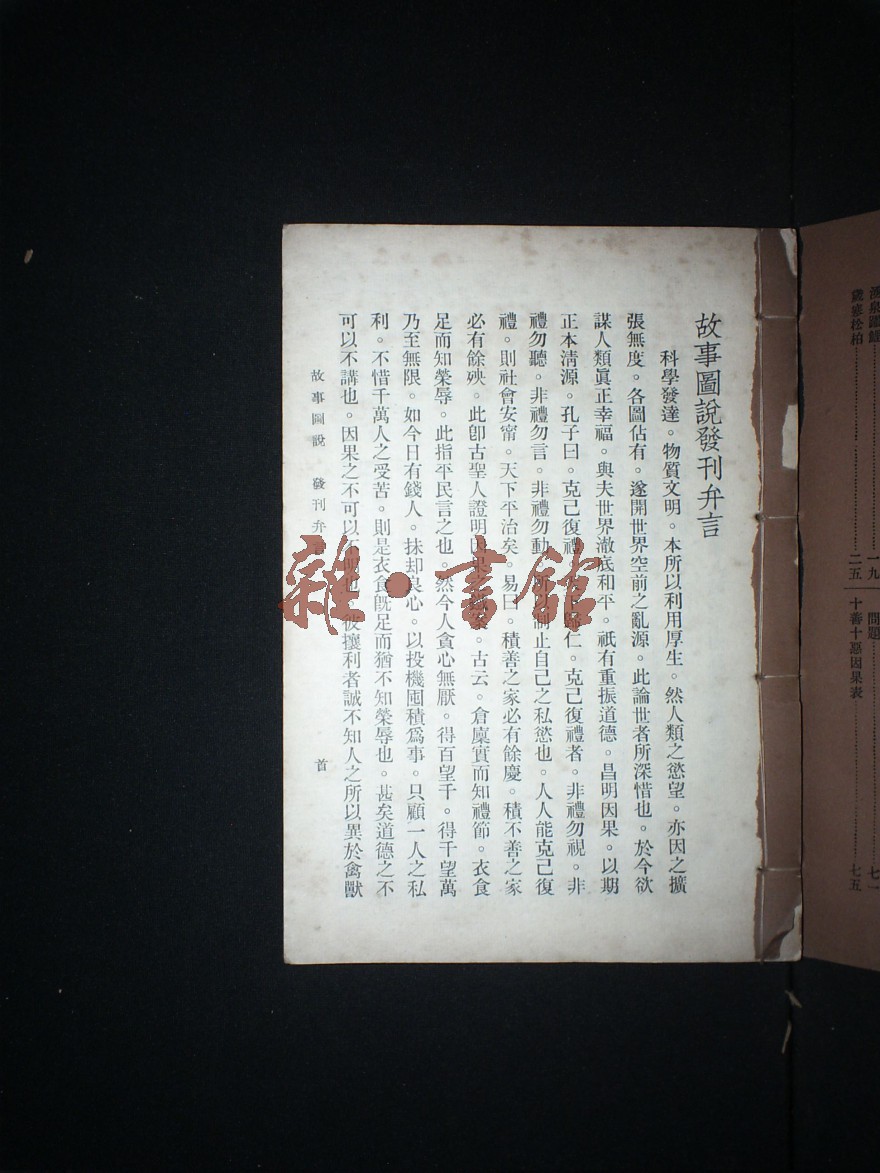 故事圖說發刊弁言
科學發達。物質文明。本所以利用厚生。然人類之慾望。亦因之擴
張無度。各圖佔有。遂開世界空前之亂源。此論世者所深惜也。於今欲
謀人類眞正幸福。與夫世界澈底和平。祇有重振道德。昌明因果。以期
正本淸源。孔子曰。克己復禮。下歸仁。克己復禮者。非禮勿視。非
禮勿聽。非禮勿言。非禮勿動。制止自己之私慾也。人人能克己復
禮。則社會安甯。天下平治矣。易曰。積善之家必有餘慶。積不善之家
必有餘殃。此卽古聖人證明因果之。古云。倉廩實而知禮節。衣食
足而知榮辱。此指平民言之也。然今人貪心無厭。得百望千。得千望萬
乃至無限。如今日有錢人。抹却良心。以投機囤積爲事。只顧一人之私
利。不惜千萬人之受苦。則是衣食旣足而猶不知榮辱也。甚矣道德之不
可以不講也。因果之不可以不也。彼攘利者誠不知人之所以異於禽獸
故事圖說 發刊弁言 首
歲寒松柏 二五
一九
問題 七一
十善十惡因果表 七五
雜·書館